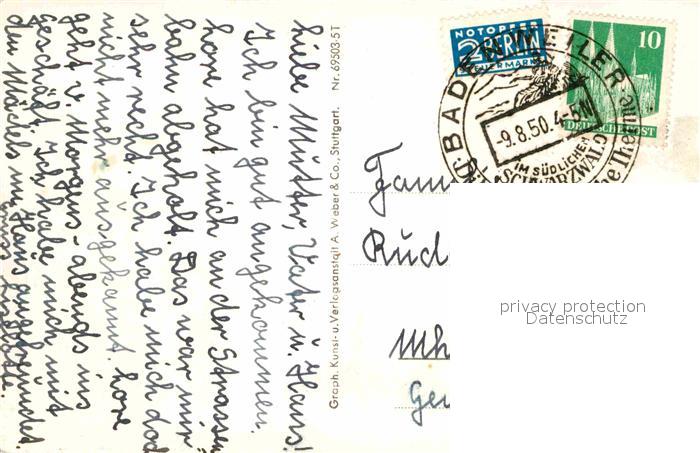 Liebe Mutter, Vater u. Hans!
Ich bin gut angekommen.
hat mich an der Strassen
bahn abgeholt. Das war mir
sehr recht. Ich habe mich doch
nicht mehr ausgekannt.
geht v. Morgens - abends ins
Geschäft. Ich habe mich mit
den Mädels im Haus angefreundet.
Graph. Kunst- u. Verlagsanstalt A. Weber & Co., Stuttgart. Nr. 69503-5T
NOTOPFER
2 BERLIN
STEUERMARKE
10
DEUTSCHE POST
BADENWEILER
-9.8.50.4-5N
IM SÜDLICHEN
SCHWARZWALD
Fam
Rud
Mh
Ge
privacy protection
Datenschutz